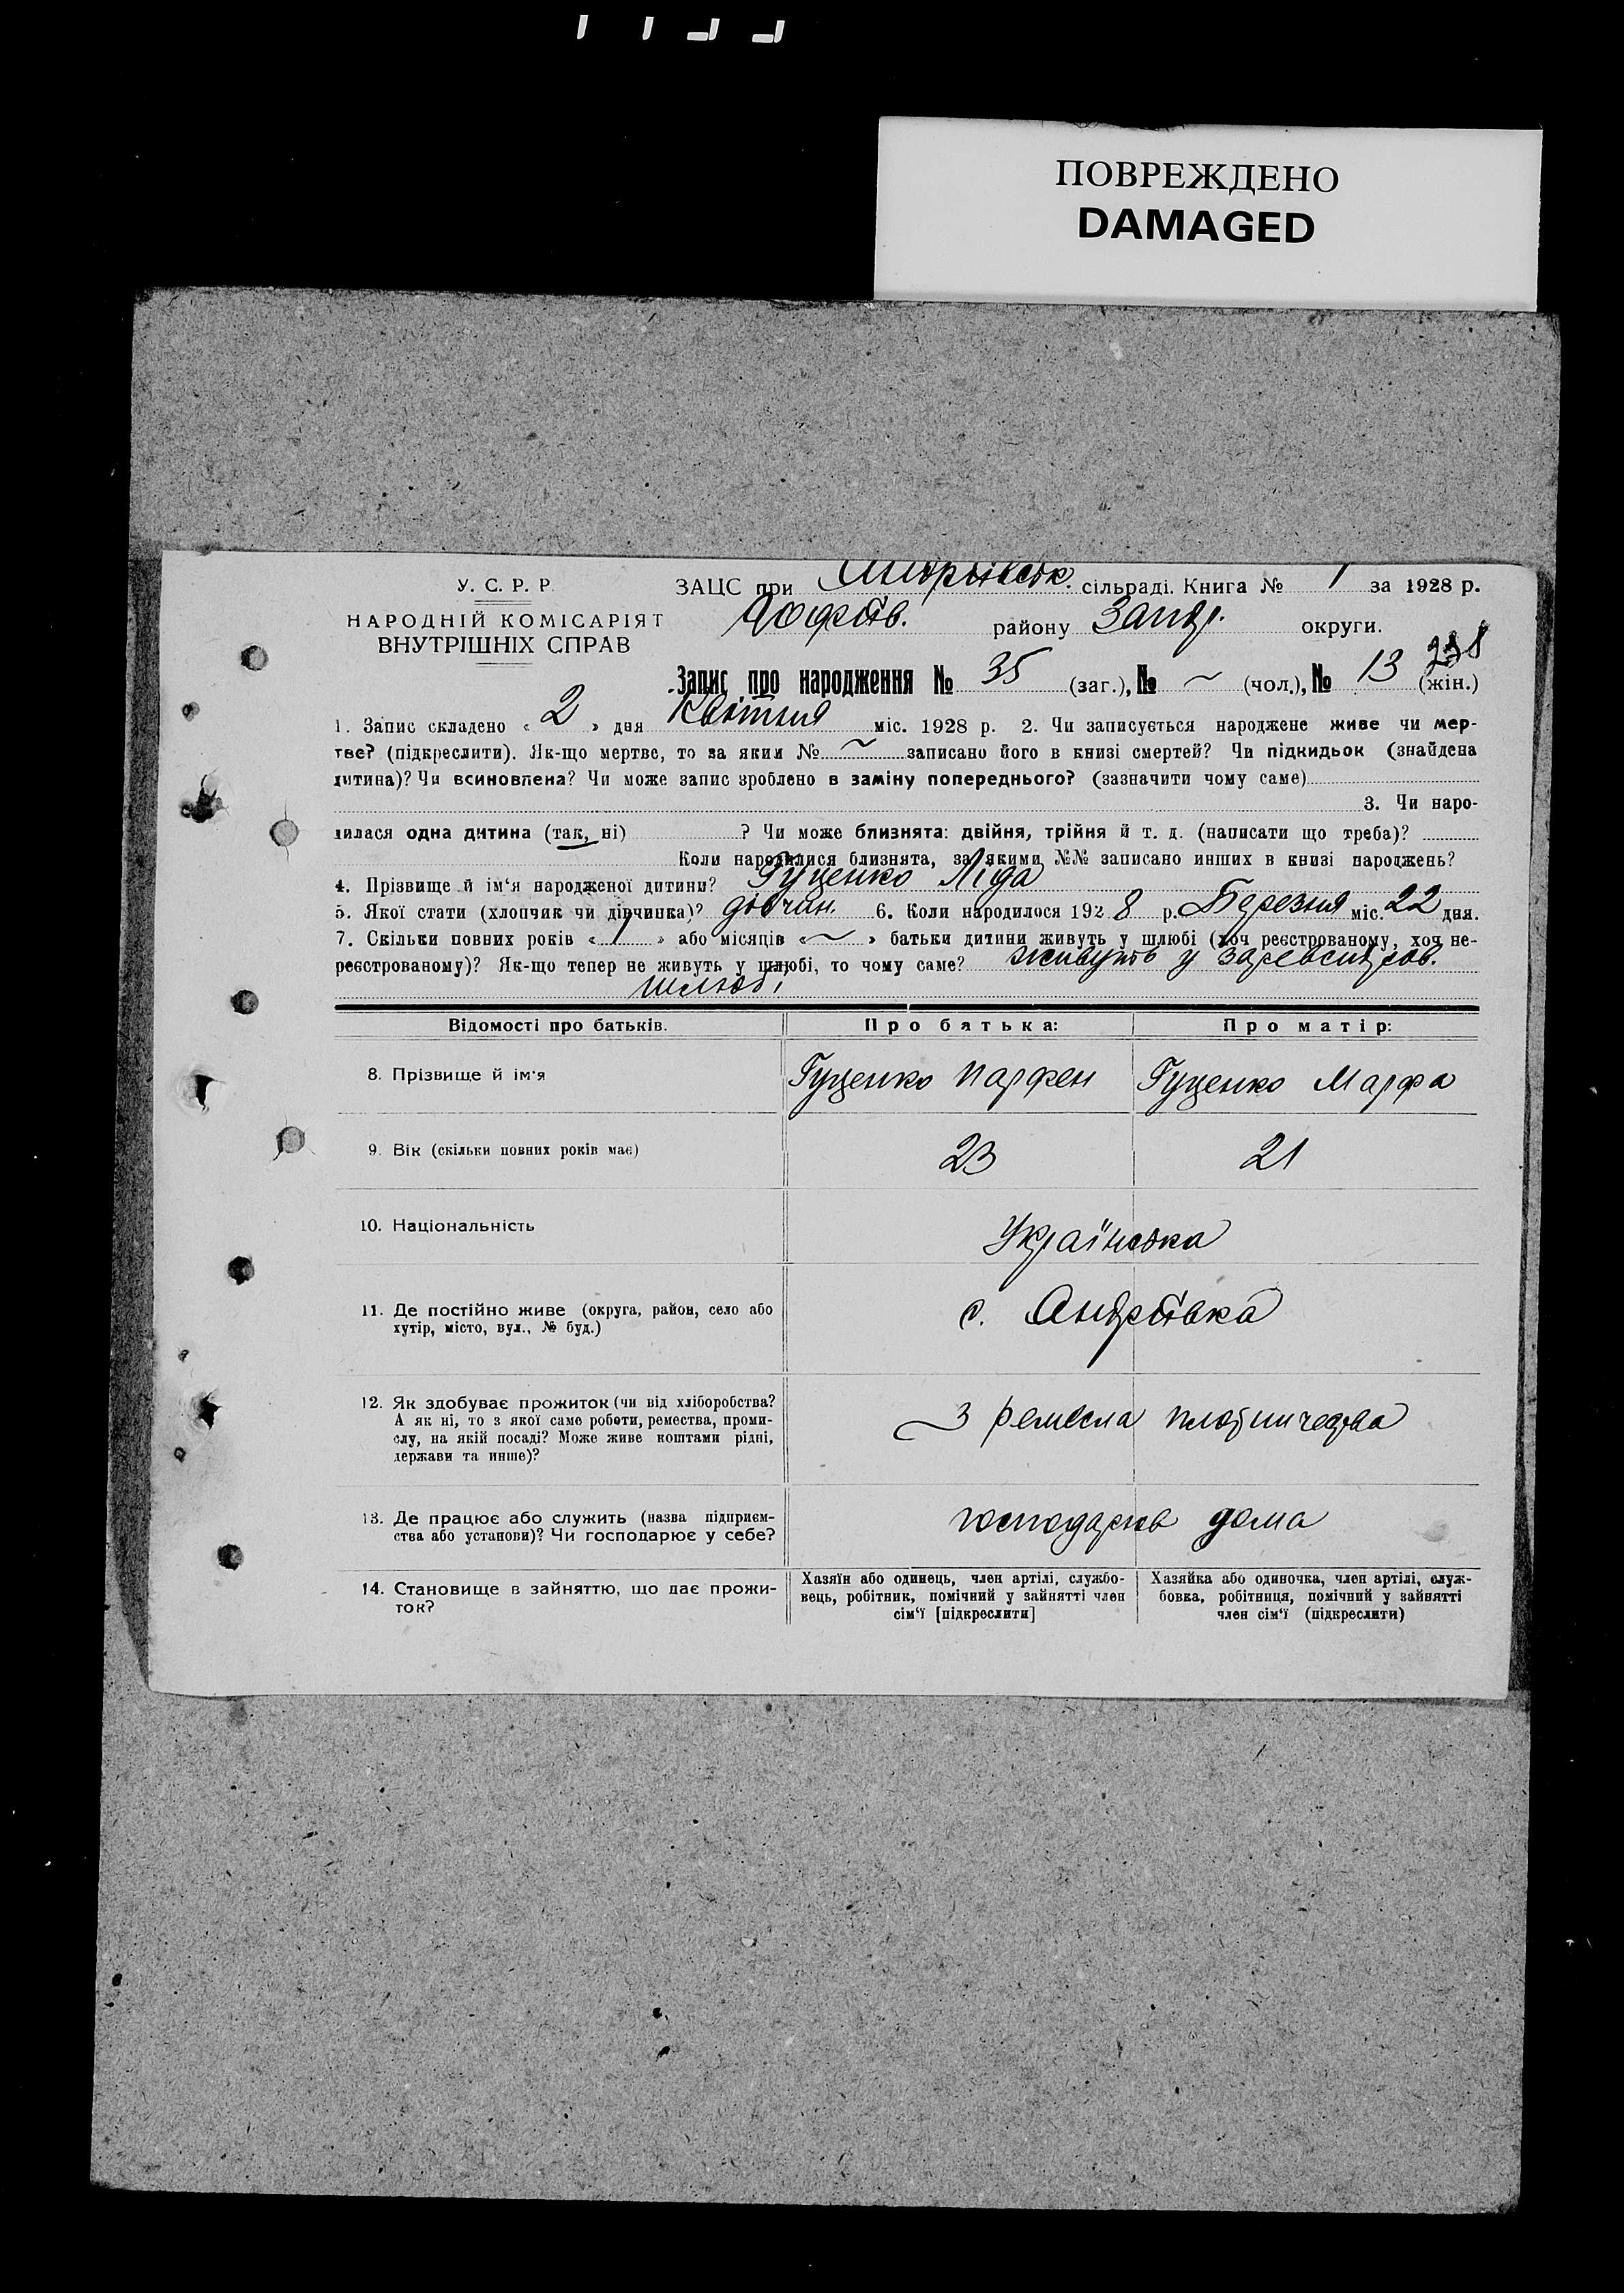 ПОВРЕЖДЕНО
DAMAGED
У. С. Р. Р.
НАРОДНІЙ КОМІСАРІЯТ
ВНУТРІШНІХ СПРАВ
ЗАЦС при Андріївськ. сільраді. Книга № 1 за 1928 р.
Софіїв. району Запор. округи.
238
Запис про народження № 35 (заг.), № ~ (чол.), № 13 (жін.)
1. Запис складено « 2 » дня Квітня міс. 1928 р. 2. Чи записується народжене живе чи мер-
тве? (підкреслити). Як-що мертве, то за яким № ~ записано його в книзі смертей? Чи підкидьок (знайдена
дитина)? Чи всиновлена? Чи може запис зроблено в заміну попереднього? (зазначити чому саме)
3. Чи наро-
дилася одна дитина (так, ні) ? Чи може близнята: двійня, трійня й т. д. (написати що треба)?
Коли народилися близнята, за якими №№ записано инших в книзі народжень?
4. Прізвище й ім‘я народженої дитини? Гуценко Ліда
5. Якої стати (хлопчик чи дівчинка)? дівчин. 6. Коли народилося 1928 р. Березня міс. 22 дня.
7. Скільки повних років « 1 » або місяців « ~ » батьки дитини живуть у шлюбі (хоч реєстрованому, хоч не-
реєстрованому)? Як-що тепер не живуть у шлюбі, то чому саме? живуть у
шлюбі
Відомості про батьків. Про батька: Про матір:
8. Прізвище й ім‘я Гуценко Парфен Гуценко Марфа
9. Вік (скільки повних років має) 23 21
10. Національність Українська
11. Де постійно живе (округа, район, село або
хутір, місто, вул., № буд.)
с. Андріївка
12. Як здобуває прожиток (чи від хліборобства?
А як ні, то з якої саме роботи, ремества, проми-
слу, на якій посаді? Може живе коштами рідні,
держави та инше)?
З ремесла плотничества
13. Де працює або служить (назва підприєм-
ства або установи)? Чи господарює у себе?
господарює дома
14. Становище в зайняттю, що дає прожи-
ток?
Хазяїн або одинець, член артілі, службо-
вець, робітник, помічний у зайнятті член
сім‘ї [підкреслити]
Хазяйка або одиночка, член артілі, служ-
бовка, робітниця, помічний у зайнятті
член сім‘ї (підкреслити)